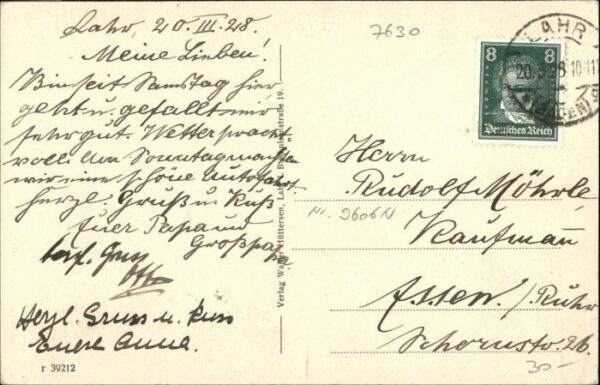 Lahr, 20.III.28.
Meine Lieben!
Bin seit Samstag hier
geht u. gefällt mir
sehr gut. Wetter pracht
voll. Am Sonntag machten
wir eine schöne Autofahrt
herzl. Gruß u. Kuß
Euer Papa u.
Großpapa
herzl. Gruss
Otto
Herzl. Gruss u. Kuss
Eure Anna.
r 39212
Verlag Hüttersen, straße 19.
7630
8 8
Deutsches Reich
LAHR
20.3.28 10-11
(BADEN)
Herrn
Rudolf Möhrle,
Nr. 9606 N
Kaufmann
Essen/Ruhr
Schornstr. 26.
30-